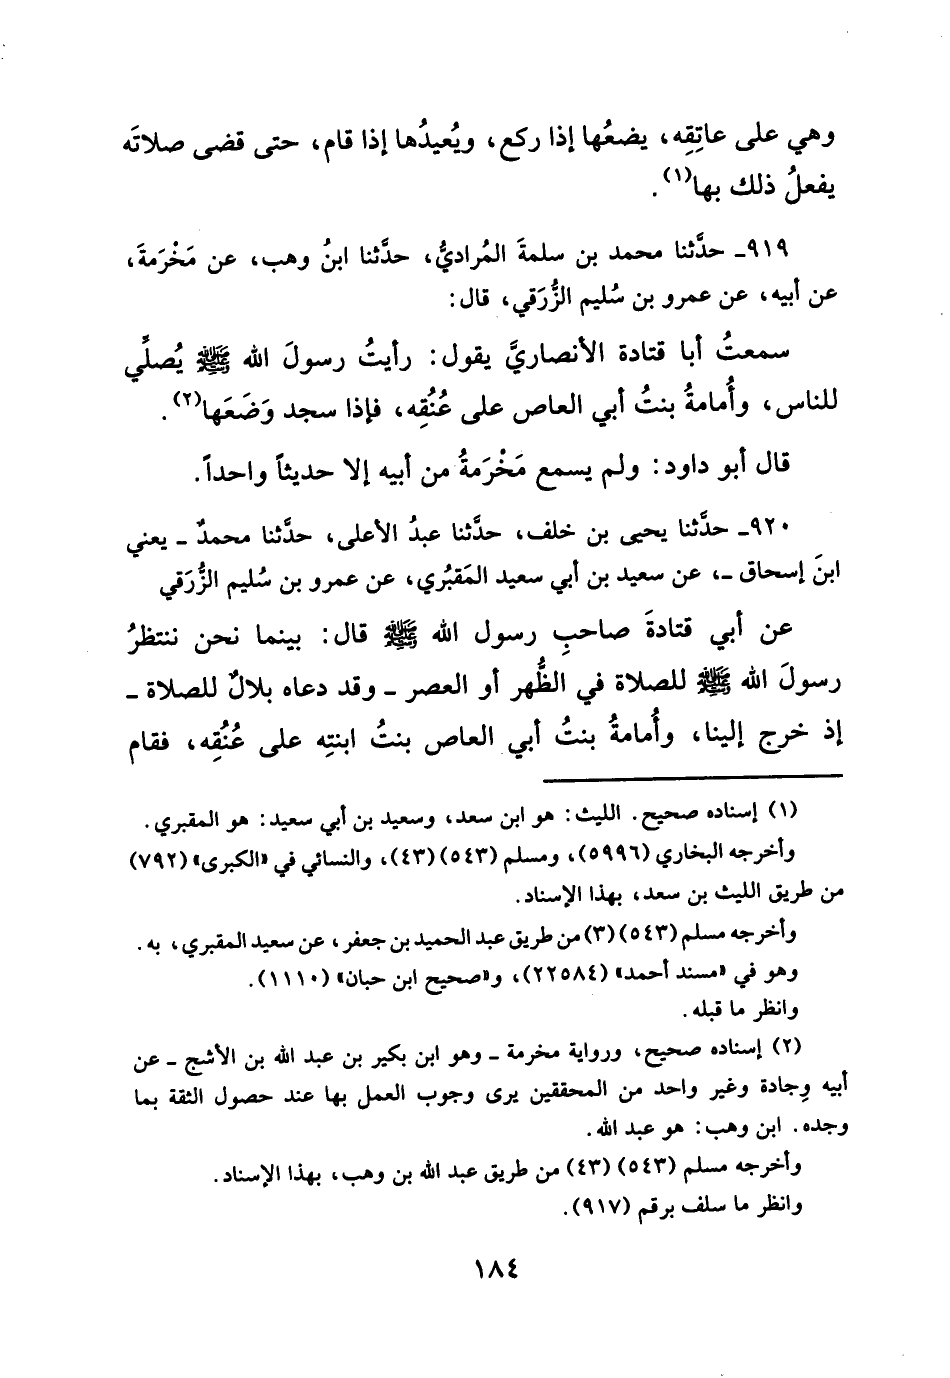 وهي على عاتِقِه، يضعُها إذا ركع، ويُعيدُها إذا قام، حتى قضى صلاتَه
يفعلُ ذلك بها(١).
٩١٩ـ حدَّثنا محمد بن سلمةَ المُراديُّ، حدَّثنا ابنُ وهب، عن مَخْرَمةَ،
عن أبيه، عن عمرو بن سُليم الزُّرَقي، قال:
سمعتُ أبا قتادة الأنصاريَّ يقول: رأيتُ رسولَ الله ﷺ يُصلِّي
للناس، وأُمامةُ بنتُ أبي العاص على عُنُقِه، فإذا سجد وَضَعَها(٢).
قال أبو داود: ولم يسمع مَخْرَمةُ من أبيه إلا حديثاً واحداً.
٩٢٠ـ حدَّثنا يحيى بن خلف، حدَّثنا عبدُ الأعلى، حدَّثنا محمدٌ ـ يعني
ابنَ إسحاق ـ، عن سعيد بن أبي سعيد المَقبُري، عن عمرو بن سُليم الزُّرَقي
عن أبي قتادةَ صاحبِ رسول الله ﷺ قال: بينما نحن ننتظرُ
رسولَ الله ﷺ للصلاة في الظُّهر أو العصر ـ وقد دعاه بلالٌ للصلاة ـ
إذ خرج إلينا، وأُمامةُ بنتُ أبي العاص بنتُ ابنتِه على عُنُقِه، فقام
(١) إسناده صحيح. الليث: هو ابن سعد، وسعيد بن أبي سعيد: هو المقبري.
وأخرجه البخاري (٥٩٩٦)، ومسلم (٥٤٣)(٤٣)، والنسائي في «الكبرى» (٧٩٢)
من طريق الليث بن سعد، بهذا الإسناد.
وأخرجه مسلم (٥٤٣)(٣) من طريق عبد الحميد بن جعفر، عن سعيد المقبري، به.
وهو في «مسند أحمد» (٢٢٥٨٤)، و«صحيح ابن حبان» (١١١٠).
وانظر ما قبله.
(٢) إسناده صحيح، ورواية مخرمة ـ وهو ابن بكير بن عبد الله بن الأشج ـ عن
أبيه وِجادة وغير واحد من المحققين يرى وجوب العمل بها عند حصول الثقة بما
وجده. ابن وهب: هو عبد الله.
وأخرجه مسلم (٥٤٣) (٤٣) من طريق عبد الله بن وهب، بهذا الإسناد.
وانظر ما سلف برقم (٩١٧).
١٨٤